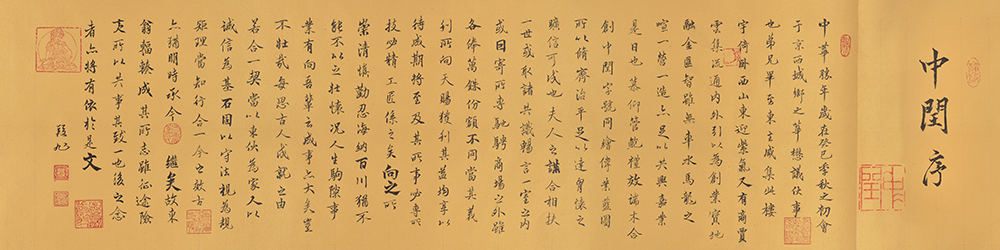 中閏序
中華勝年歲在癸巳季秋之初會
于京西城鄉之草懋議伙事
也弟兄畢至東主咸集此樓
宇倚卧西山東迎紫氣又有商賈
雲集流通內外引以為創業寶地
融金匱智雖無車水馬龍之
喧一營一造亦足以共興嘉業
是日也慕仰管範效端木合
創中閏字號同繪偉業藍圖
所以脩齊治平足以達胷懷之
曠信可也夫人之謀合相扶
一世或取諸共識暢言一室之內
或因寄所專馳騁商場之外雖
各俸萬銖份額不同當其義
利所向天賜穫利其益均享以
待咸期將至及其所事必專所
技必精工匠係之矣向之所
崇清慎勤忍海納百川猶不
能不以之壯懷況人生駒隙事
業有向吾輩云成事亦大矣豈
不壯哉每思古人成就之由
若合一契當以東伙為家人以
誠信為基石固以守法規為規
矩理當知行合一今之效古
亦猶明時承今 繼矣故東
翁輻輳成其所志雖征途險
所以共事其致一也後之念
者亦將有依於是文
中閏